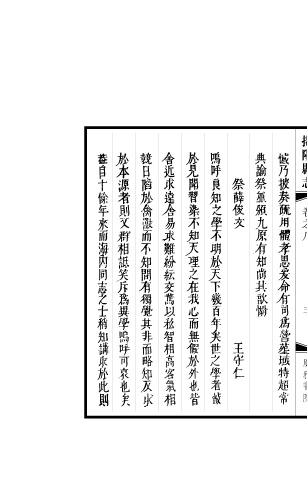 憾乃披奏頤用軆孝思爰命有司爲營塋域特超常
典諭祭並頒九原有知尚其歆慰
祭薛俊文 王守仁
嗚呼良知之學不明於天下幾百年矣世之學者蔽
於見聞習染不知天理之在我心而無假於外也皆
舍近求遠舍易求難紛紜交騖以私智相高客氣相
競日陷於禽獸而不知間有獨覺其非而略知反求
於本源者則又羣相詆笑斥爲異學嗚呼可哀也矣
蓋自十餘年來而海內同志之士稍知講求於此則
揭陽縣志
卷之八